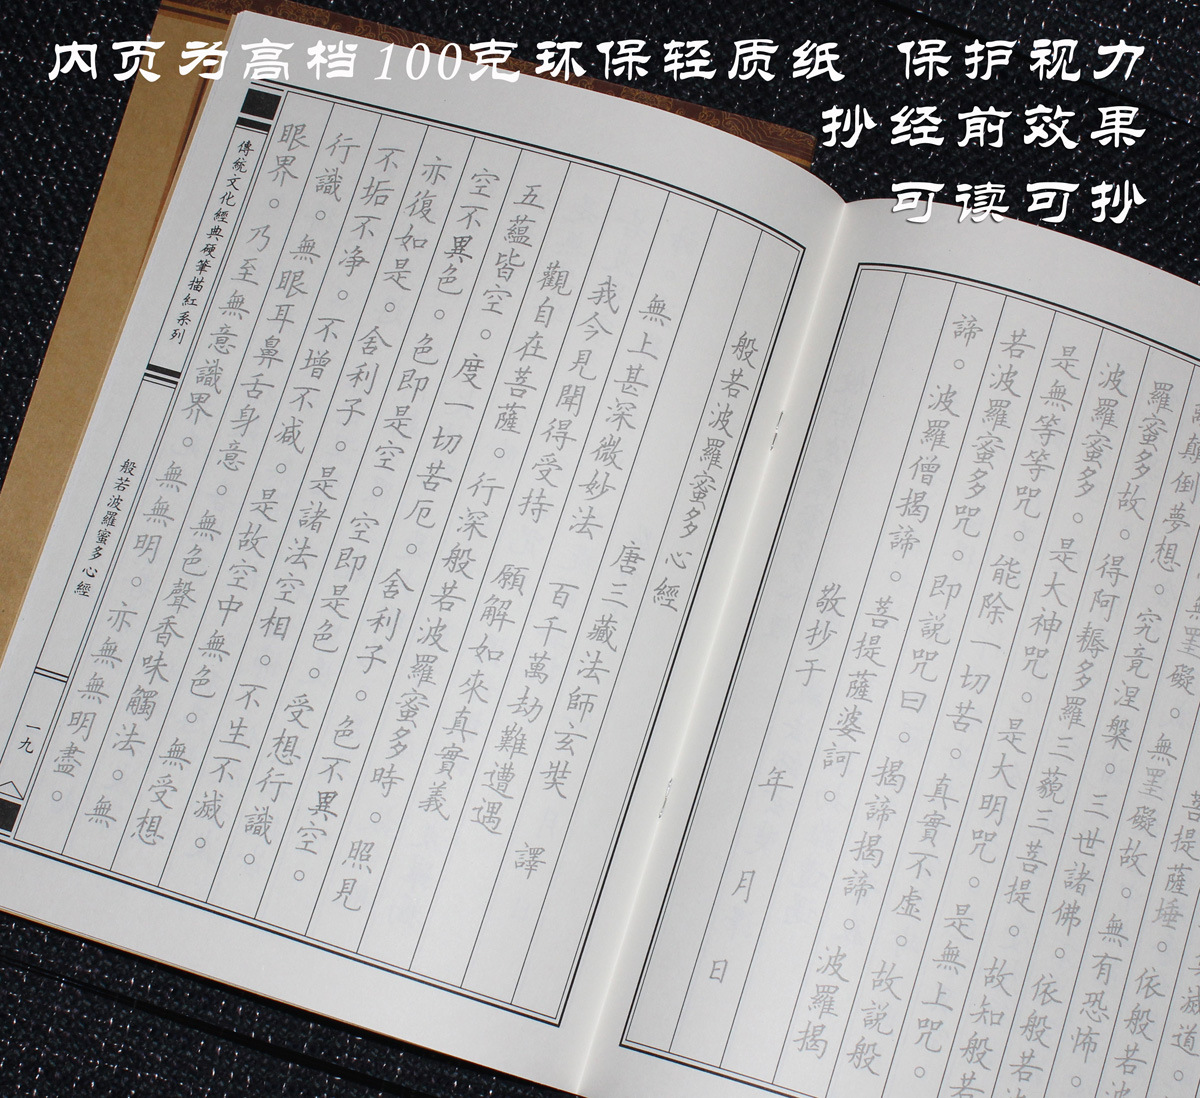 内页为高档100克环保轻质纸 保护视力
抄经前效果
可读可抄
般若波羅蜜多心經
唐三藏法師玄奘 譯
無上甚深微妙法 百千萬劫難遭遇
我今見聞得受持 願解如來真實義
觀自在菩薩。行深般若波羅蜜多時。照見
五蘊皆空。度一切苦厄。舍利子。色不異空。
空不異色。色即是空。空即是色。受想行識。
亦復如是。舍利子。是諸法空相。不生不滅。
不垢不净。不增不减。是故空中無色。無受想
行識。無眼耳鼻舌身意。無色聲香味觸法。無
眼界。乃至無意識界。無無明。亦無無明盡。
傳統文化經典硬筆描紅系列
般若波羅蜜多心經
一九
滅道
菩提薩埵。依般若波
罣礙。無罣礙故。無有恐怖。
顛倒夢想。究竟涅槃。三世諸佛。依般若
羅蜜多故。得阿耨多羅三藐三菩提。故知般若
波羅蜜多。是大神咒。是大明咒。是無上咒。
是無等等咒。能除一切苦。真實不虛。故說般
若波羅蜜多咒。即說咒曰。揭諦揭諦。波羅揭
諦。波羅僧揭諦。菩提薩婆訶。
敬抄于
年 月 日